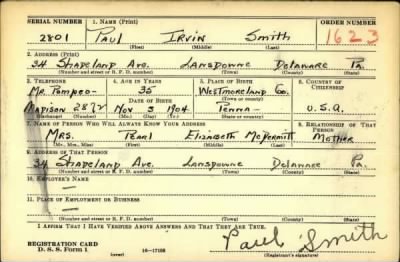 SERIAL NUMBER 1. NAME (Print) ORDER NUMBER
2801 PAUL IRVIN SMITH 1623
(First) (Middle) (Last)
2. ADDRESS (Print)
34 SHADELAND AVE. LANSDOWNE DELAWARE PA.
(Number and street or R. F. D. number) (Town) (County) (State)
3. TELEPHONE 4. AGE IN YEARS 5. PLACE OF BIRTH 6. COUNTRY OF CITIZENSHIP
MR. POMPEO- 35 WESTMORELAND CO.
DATE OF BIRTH (Town or county)
MADISON 2872 NOV 3 1904 PENNA- U.S.A.
(Exchange) (Number) (Mo.) (Day) (Yr.) (State or country)
7. NAME OF PERSON WHO WILL ALWAYS KNOW YOUR ADDRESS 8. RELATIONSHIP OF THAT PERSON
MRS. PEARL ELIZABETH MCDERMITT MOTHER
(Mr., Mrs., Miss) (First) (Middle) (Last)
9. ADDRESS OF THAT PERSON
34 SHADELAND AVE. LANSDOWNE DELAWARE PA.
(Number and street or R. F. D. number) (Town) (County) (State)
10. EMPLOYER'S NAME
—
11. PLACE OF EMPLOYMENT OR BUSINESS
—
(Number and street or R. F. D. number) (Town) (County) (State)
I AFFIRM THAT I HAVE VERIFIED ABOVE ANSWERS AND THAT THEY ARE TRUE.
Paul Smith
REGISTRATION CARD
D. S. S. Form 1 (over) 16—17105 (Registrant's signature)